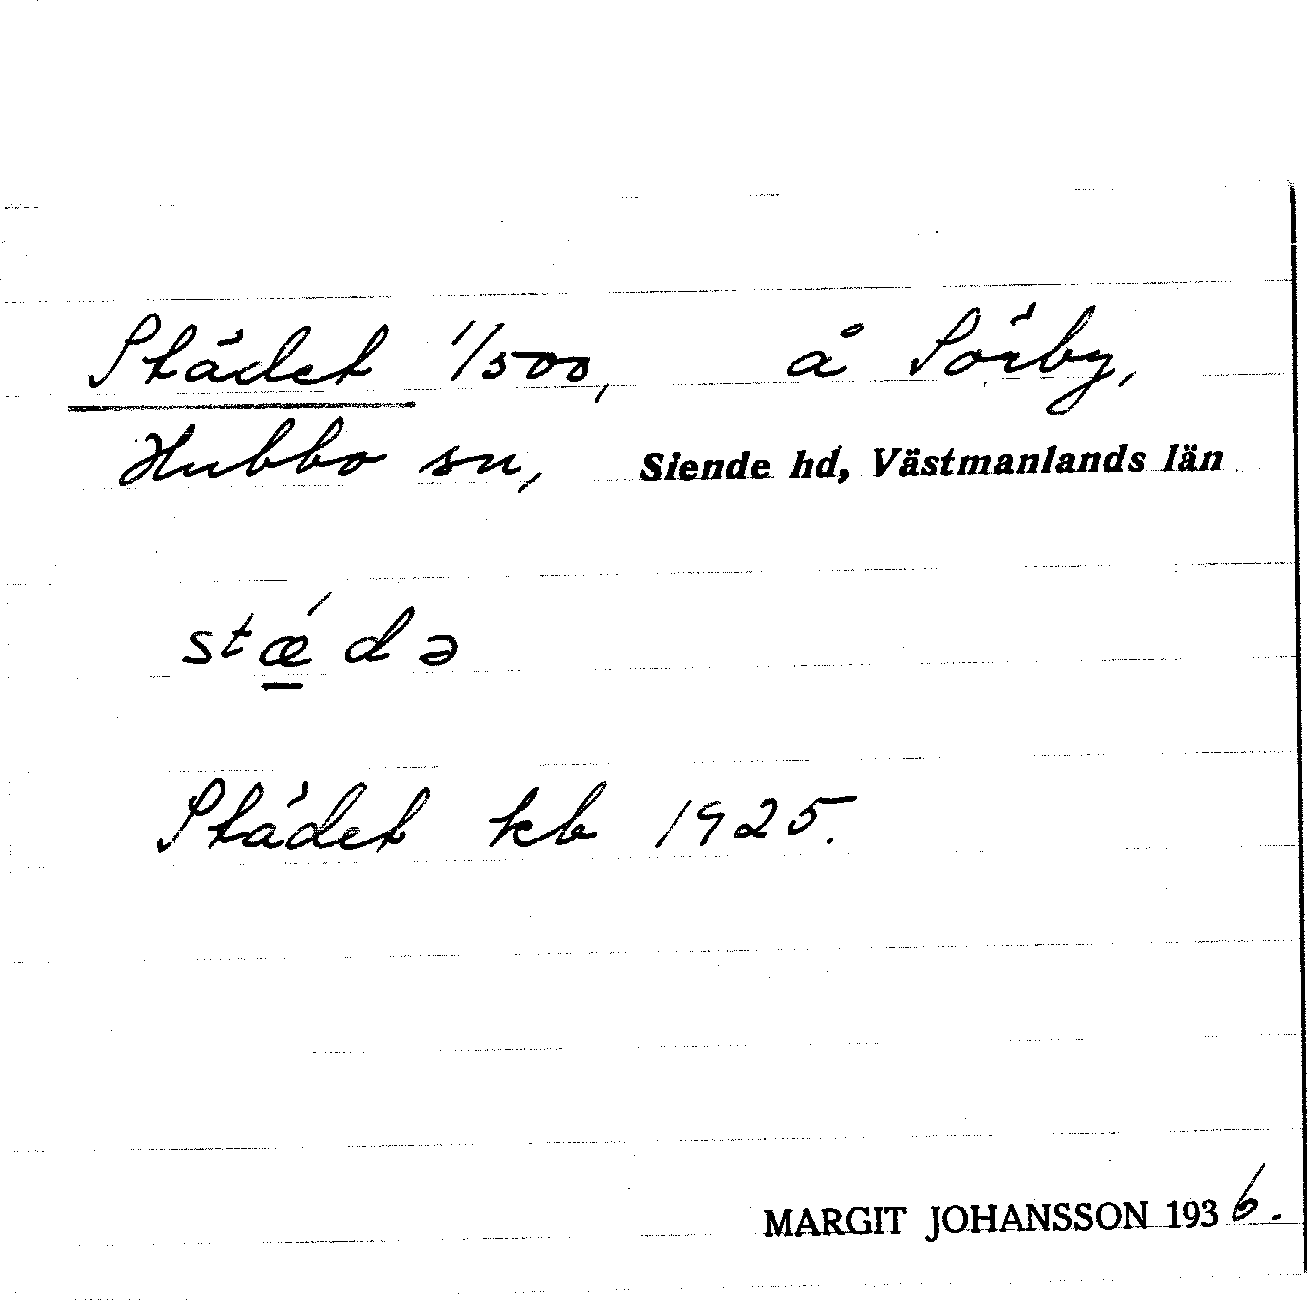 Städet 1/500, å Sörby,
Hubbo sn, Siende hd, Västmanlands län
stǽdə
Städet kb 1925.
MARGIT JOHANSSON 1936.